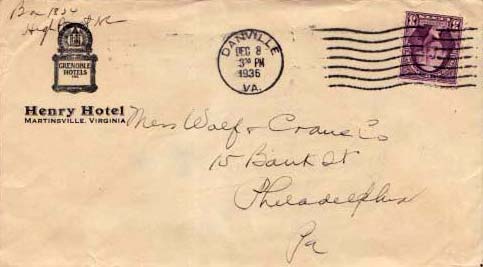 Box 1854
High Point NC
GRENOBLE
HOTELS
INC.
Henry Hotel
MARTINSVILLE, VIRGINIA
DANVILLE
DEC 8
3 30 PM
1936
VA.
Mess Wolf & Crane Co
15 Bank St
Philadelphia
Pa